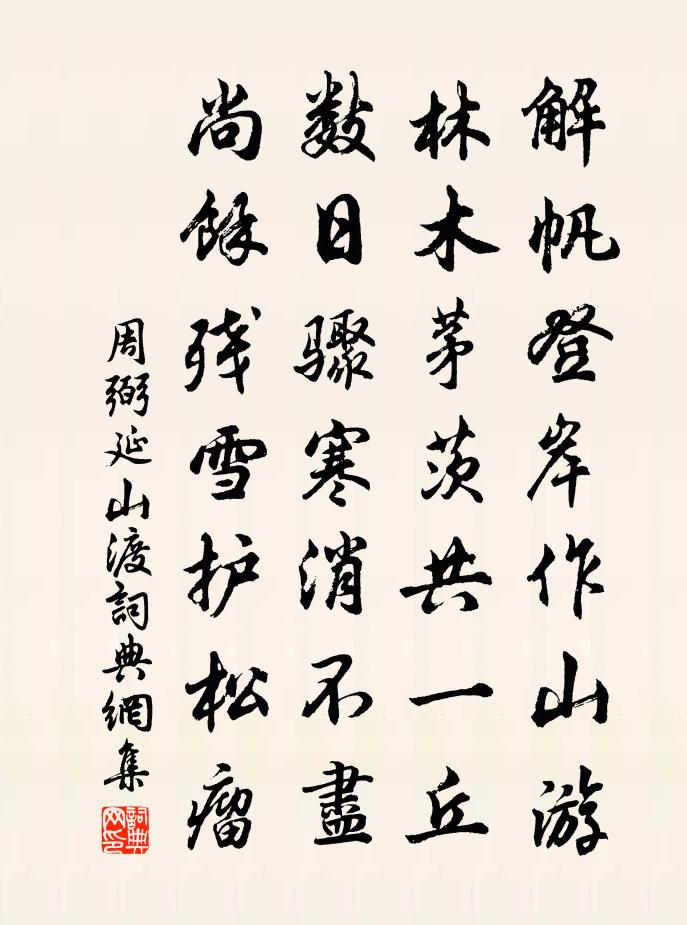 解帆登岸作山游
林木茅茨共一丘
数日骤寒消不盡
尚餘残雪护松瘤
周弼延山渡詞典網集
詞典网印